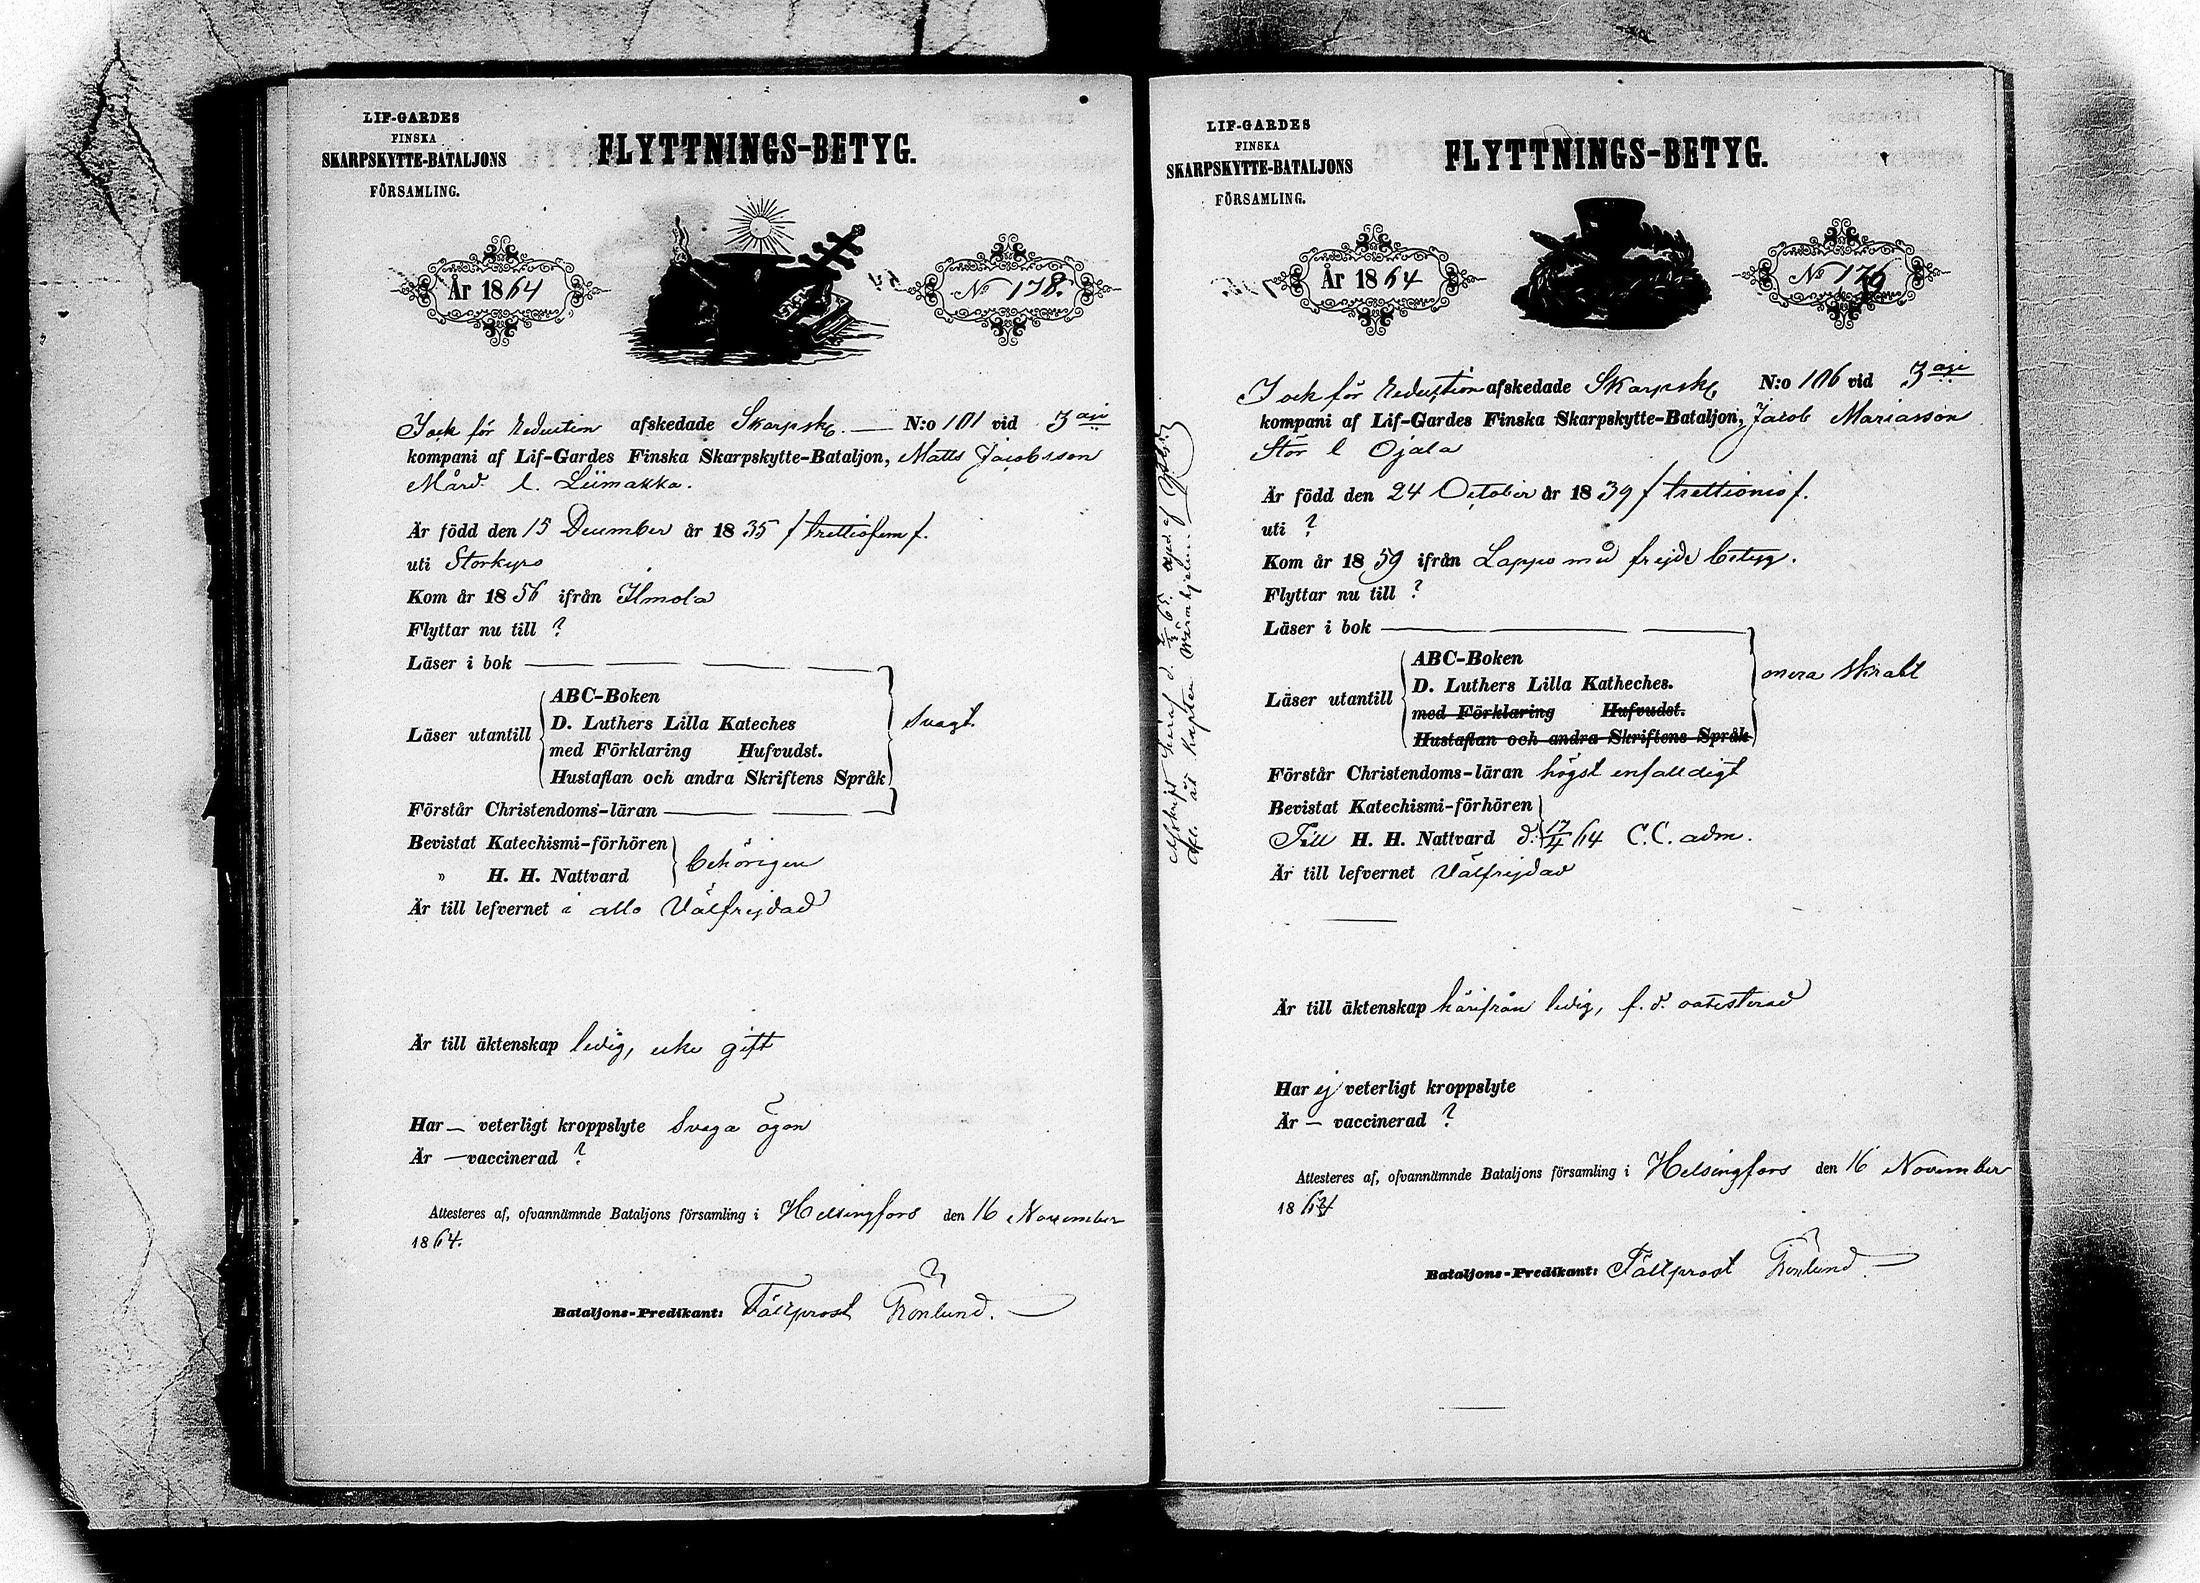 LIF-GARDES
FINSKA
SKARPSKYTTE-BATALJONS
FÖRSAMLING.
FLYTTNINGS-BETYG.
År 1864
No 178.
afskedade Skarpsk. — N:o 101 vid 3
kompani af Lif-Gardes Finska Skarpskytte-Bataljon, Matts Jacobsson
Mård l. Liimakka.
Är född den 15 December år 1835 / trettiofem /.
uti Storkyro
Kom år 1856 ifrån Ilmola
Flyttar nu till ?
Läser i bok
Läser utantill
ABC-Boken
D. Luthers Lilla Kateches
med Förklaring Hufvudst.
Hustaflan och andra Skriftens Språk
Svagt.
Förstår Christendoms-läran
Bevistat Katechismi-förhören
" H. H. Nattvard
behörigen
Är till lefvernet i allo Välfrejdad
Är till äktenskap ledig, icke gift
Har — veterligt kroppslyte Svaga ögon
Är — vaccinerad ?
Attesteres af, ofvannämnde Bataljons församling i Helsingfors den 16 November
1864.
Bataljons-Predikant: Fältprost Grönlund.
LIF-GARDES
FINSKA
SKARPSKYTTE-BATALJONS
FÖRSAMLING.
FLYTTNINGS-BETYG.
År 1864
No 176
för reduction afskedade Skarpsk. N:o 106 vid 3
kompani af Lif-Gardes Finska Skarpskytte-Bataljon, Jacob Mariasson
Stor l Ojala
Är född den 24 October år 1839 / trettionio /.
uti ?
Kom år 1859 ifrån Lappo med frejdebetyg.
Flyttar nu till ?
Läser i bok
Läser utantill
ABC-Boken
D. Luthers Lilla Katheches.
med Förklaring Hufvudst.
Hustaflan och andra Skriftens Språk
Förstår Christendoms-läran högst enfaldigt
Bevistat Katechismi-förhören
Till H. H. Nattvard d. 17/4 64 C.C. adm.
Är till lefvernet Välfrejdad
Är till äktenskap härifrån ledig, f. d.
Har ej veterligt kroppslyte
Är — vaccinerad ?
Attesteres af, ofvannämnde Bataljons församling i Helsingfors den 16 November
1864
Bataljons-Predikant: Fältprost Grönlund.